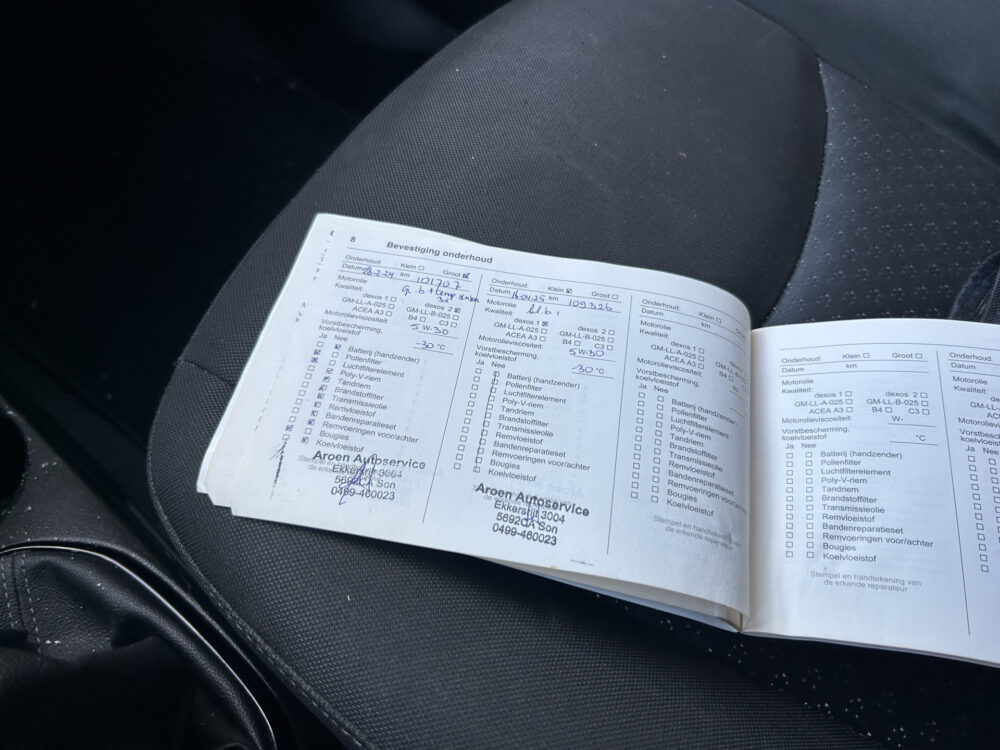 8 Bevestiging onderhoud
Onderhoud: Klein ☐ Groot ☒
Datum 28-2-24 km 101707
Motorolie
Kwaliteit:
dexos 1 ☐ dexos 2 ☒
GM-LL-A-025 ☐ GM-LL-B-025 ☐
ACEA A3 ☐ B4 ☐ C3 ☐
Motorolieviscositeit: 5 W-30
Vorstbescherming,
koelvloeistof -30 °C
Ja Nee
Batterij (handzender)
Pollenfilter
Luchtfilterelement
Poly-V-riem
Tandriem
Brandstoffilter
Transmissieolie
Remvloeistof
Bandenreparatieset
Remvoeringen voor/achter
Bougies
Koelvloeistof
Aroen Autoservice
Ekkersrijt 3004
5692CA Son
0499-460023
Onderhoud: Klein ☒ Groot ☐
Datum 16-04-25 km 109326
Motorolie
Kwaliteit:
dexos 1 ☒ dexos 2 ☐
GM-LL-A-025 ☐ GM-LL-B-025 ☐
ACEA A3 ☐ B4 ☐ C3 ☐
Motorolieviscositeit: 5W-30
Vorstbescherming,
koelvloeistof -30 °C
Ja Nee
Batterij (handzender)
Pollenfilter
Luchtfilterelement
Poly-V-riem
Tandriem
Brandstoffilter
Transmissieolie
Remvloeistof
Bandenreparatieset
Remvoeringen voor/achter
Bougies
Koelvloeistof
Aroen Autoservice
Ekkersrijt 3004
5692CA Son
0499-460023
Onderhoud: Klein ☐
Datum km
Motorolie
Kwaliteit:
dexos 1 ☐
GM-LL-A-025 ☐
ACEA A3 ☐ B4
Motorolieviscositeit:
Vorstbescherming,
koelvloeistof
Ja Nee
Batterij (handzender)
Pollenfilter
Luchtfilterelement
Poly-V-riem
Tandriem
Brandstoffilter
Transmissieolie
Remvloeistof
Bandenreparatieset
Remvoeringen voor/achter
Bougies
Koelvloeistof
Stempel en handtekening van
de erkende reparateur
Onderhoud: Klein ☐ Groot ☐
Datum km
Motorolie
Kwaliteit:
dexos 1 ☐ dexos 2 ☐
GM-LL-A-025 ☐ GM-LL-B-025 ☐
ACEA A3 ☐ B4 ☐ C3 ☐
Motorolieviscositeit: W-
Vorstbescherming,
koelvloeistof °C
Ja Nee
Batterij (handzender)
Pollenfilter
Luchtfilterelement
Poly-V-riem
Tandriem
Brandstoffilter
Transmissieolie
Remvloeistof
Bandenreparatieset
Remvoeringen voor/achter
Bougies
Koelvloeistof
Stempel en handtekening van
de erkende reparateur
Onderhoud:
Datum
Motorolie
Kwaliteit:
Ja Nee